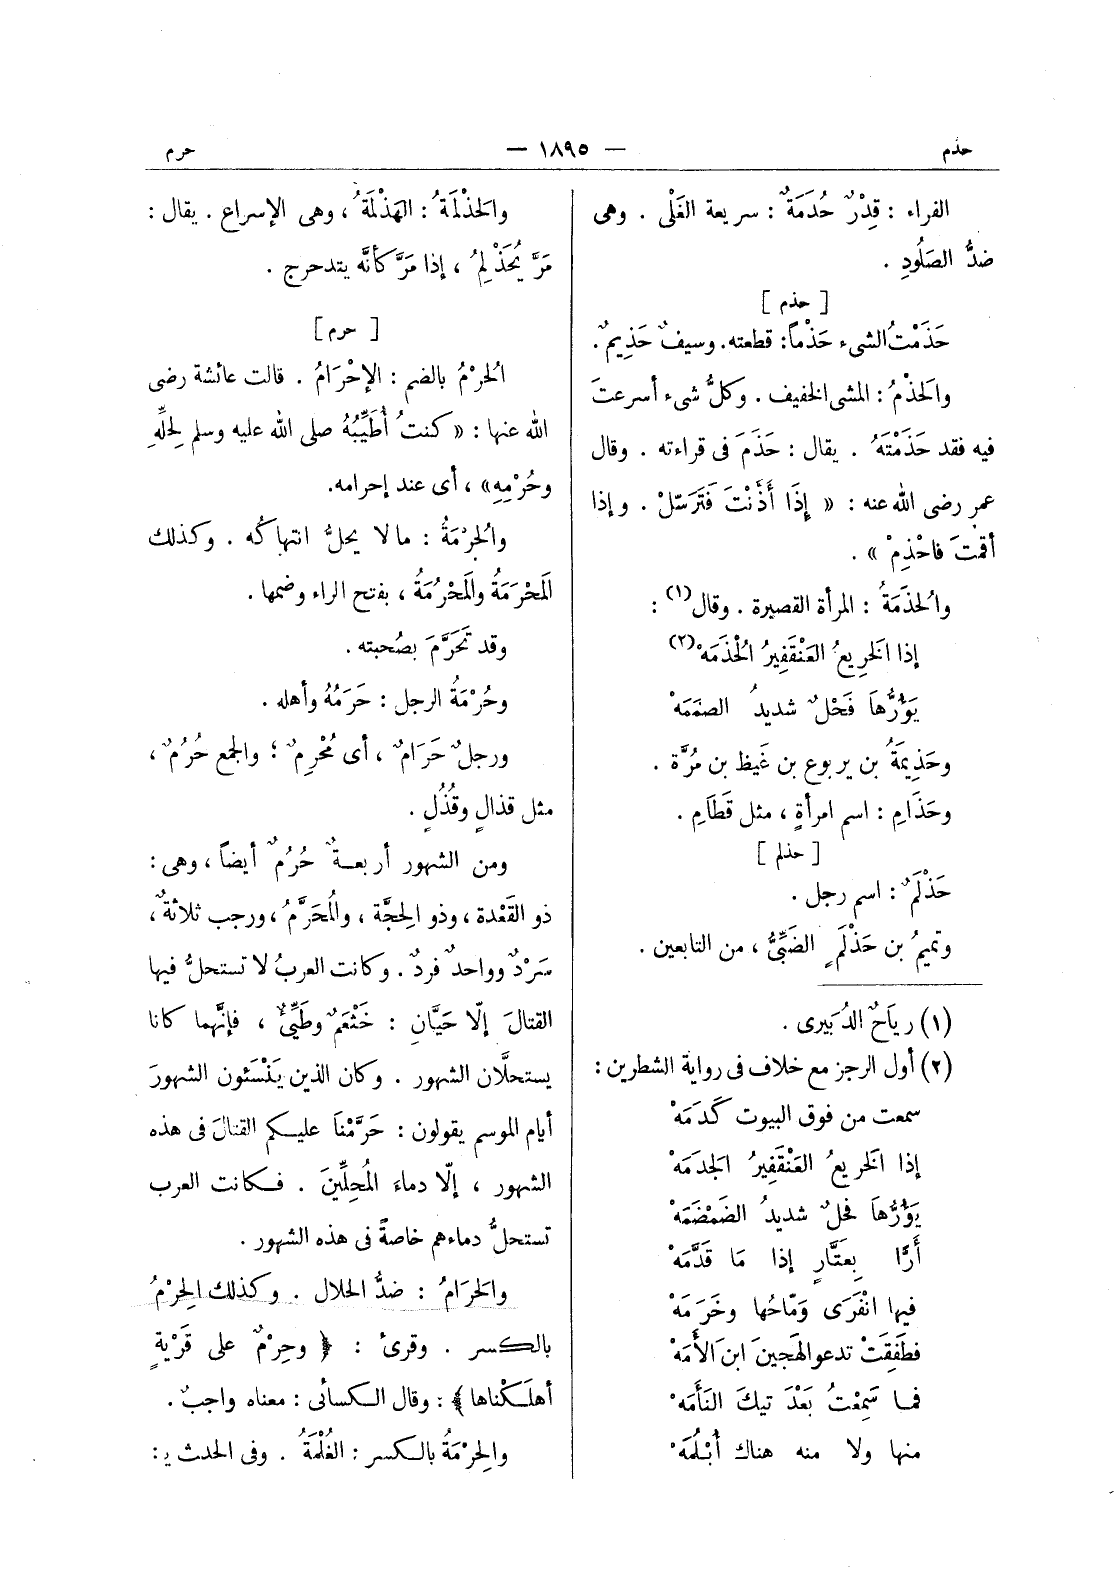 حذم — ١٨٩٥ — حرم
الفراء : قِدْرٌ حُدَمَةٌ : سريعة الغَلْى . وهى
ضدُّ الصَلُودِ .
[ حذم ]
حَذَمْتُ الشىء حَذْماً : قطعته. وسيفٌ حَذِيمٌ .
والَحذْمُ : المشى الخفيف . وكلُّ شىء أسرعتَ
فيه فقد حَذَمْتَهُ . يقال : حَذَمَ فى قراءته . وقال
عمر رضى الله عنه : « إِذَا أَذَّنْتَ فَتَرَسَّلْ . وإذا
أقمتَ فاحْذِمْ » .
والُحذَمَةُ : المرأة القصيرة . وقال(١) :
إذا الَخرِيعُ العَنْقَفِيرُ الُحْذَمَهْ(٢)
يَؤُرُّهَا فَحْلٌ شديدُ الصمَمَهْ
وحَذِيمَةُ بن يربوع بن غَيظ بن مُرَّة .
وحَذَامِ : اسم امرأةٍ ، مثل قَطَامِ .
[ حذلم ]
حَذْلَمٌ : اسم رجل .
وتميمُ بن حَذْلَمٍ الضَبِّىُّ ، من التابعين .
(١) رِيَاحٌ الدُبَيرى .
(٢) أول الرجز مع خلاف فى رواية الشطرين :
سمعت من فوق البيوت كَدَمَهْ
إذا الَخريعُ العَنْقَفِيرُ الَجدَمَهْ
يَؤُرُّهَا فحلٌ شديدُ الضَمْضَمَهْ
أَرًّا بِعَتَّارٍ إذا مَا قَدَّمَهْ
فيها انْفَرَى وَمَّاحُها وخَرَمَهْ
فطَفِقَتْ تدعو الهَجينَ ابنَ الأَمَهْ
فما سَمِعْتُ بَعْدَ تيكَ النَأَمَهْ
منها ولا منه هناك أَبْلُمَهْ
والَحذْلَمَةُ : الهَذْلَمَةُ ، وهى الإسراع . يقال :
مَرَّ يُحَذْلِمُ ، إذا مَرَّ كأنَّه يتدحرج .
[ حرم ]
الُحرْمُ بالضم : الإحْرَامُ . قالت عائشة رضى
الله عنها : « كنتُ أُطَيِّبُهُ صلى الله عليه وسلم لِحلِّهِ
وحُرْمِهِ» ، أى عند إحرامه.
والُحرْمَةُ : ما لا يحلُّ انتهاكُه . وكذلك
الَمحْرَمَةُ والَمحْرُمَةُ ، بفتح الراء وضمها .
وقد تَحَرَّمَ بصُحبته .
وحُرْمَةُ الرجل : حَرَمُهُ وأهله .
ورجلٌ حَرَامٌ ، أى مُحْرِمٌ ؛ والجمع حُرُمٌ ،
مثل قذالٍ وقُذُلٍ .
ومن الشهور أربعـةٌ حُرُمٌ أيضاً ، وهى :
ذو القَعْدة ، وذو الِحجَّة ، والُمحَرَّمُ ، ورجب ثلاثةٌ ،
سَرْدٌ وواحد فردٌ . وكانت العربُ لا تستحلُّ فيها
القتالَ إلّا حَيَّانِ : خَثْعَمٌ وطَيِّئٌ ، فإنَّهما كانا
يستحلَّان الشهور . وكان الذين يَنْسَئون الشهورَ
أيام الموسم يقولون : حَرَّمْنَا عليـكم القتالَ فى هذه
الشهور ، إلّا دماءَ الُمحِلِّينَ . فـكانت العرب
تستحلُّ دماءهم خاصةً فى هذه الشهور .
والَحرَامُ : ضدُّ الحلال . وكذلك الِحرْمُ
بالـكسر . وقرئ : ﴿ وحِرْمٌ على قَرْيةٍ
أهلَـكْناها ﴾ : وقال الـكسائى : معناه واجبٌ .
والِحرْمَةُ بالـكسر : الغُلْمَةُ . وفى الحدث ي: